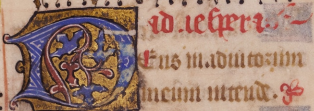 Ad uesperas
Deus in adiutorium
meum intende.